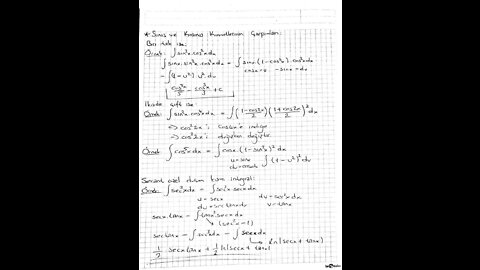 * Sinüs ve Kosinüs Kuvvetlerinin Çarpımları:
Biri tek ise:
Örnek: ∫sin³x.cos²x dx
∫sinx.sin²x.cos²x dx = ∫sinx.(1-cos²x).cos²x dx
cosx=u -sinx=du
-∫(1-u²) u² du
cos⁵x/5 - cos³x/3 + c
İkisi de çift ise:
Örnek: ∫sin²x.cos²x dx = ∫(1-cos2x/2)(1+cos2x/2)² dx
⇒ cos²2x'i cos4x'e indirge
⇒ cos³2x'i değişken değiştir
Örnek ∫cos⁵x dx = ∫cosx.(1-sin²x)² dx
u=sinx ∫(1-u²)² du
du=cosxdx
Secant özel durum kısmi integral:
Örnek: ∫sec³x dx = ∫sec²x secx dx
u=secx dv=sec²x dx
du=secx tanx dx v=tanx
secx.tanx - ∫tan²x secx dx
(sec²x-1)
secx tanx - ∫sec³x dx - ∫secx dx
ln|secx+tanx|
1/2 secx tanx + 1/2 ln|secx+tanx|